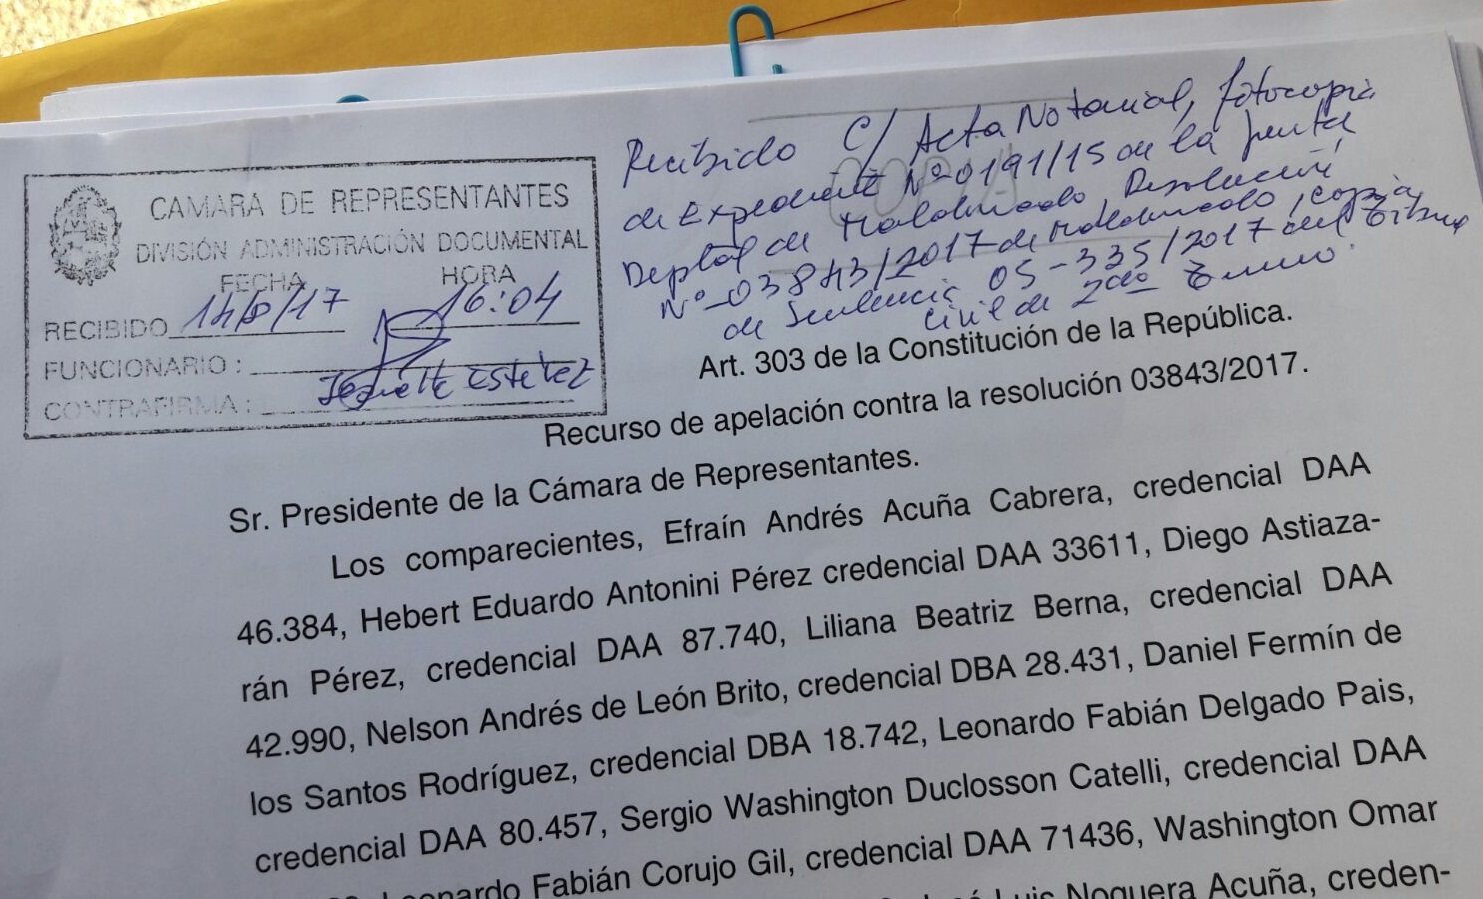 CAMARA DE REPRESENTANTES
DIVISIÓN ADMINISTRACIÓN DOCUMENTAL
FECHA HORA
RECIBIDO 14/8/17 16:04
FUNCIONARIO :
CONTRAFIRMA : Estevez
Recibido C/ Acta Notarial, fotocopia
de Expediente Nº 0191/15 de la Junta
COPIA
Deptal de Maldonado, Resolución
Nº 03843/2017 de Maldonado, copia
de Sentencia 05-335/2017 del Tribunal
Civil de 2do Turno.
Art. 303 de la Constitución de la República.
Recurso de apelación contra la resolución 03843/2017.
Sr. Presidente de la Cámara de Representantes.
Los comparecientes, Efraín Andrés Acuña Cabrera, credencial DAA
46.384, Hebert Eduardo Antonini Pérez credencial DAA 33611, Diego Astiaza-
rán Pérez, credencial DAA 87.740, Liliana Beatriz Berna, credencial DAA
42.990, Nelson Andrés de León Brito, credencial DBA 28.431, Daniel Fermín de
los Santos Rodríguez, credencial DBA 18.742, Leonardo Fabián Delgado Pais,
credencial DAA 80.457, Sergio Washington Duclosson Catelli, credencial DAA
Leonardo Fabián Corujo Gil, credencial DAA 71436, Washington Omar
Luis Noguera Acuña, creden-